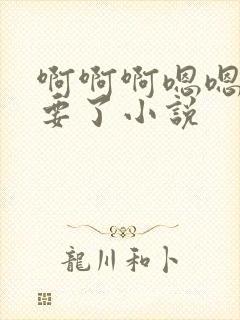 啊啊啊嗯嗯
要了小説
龍川和卜